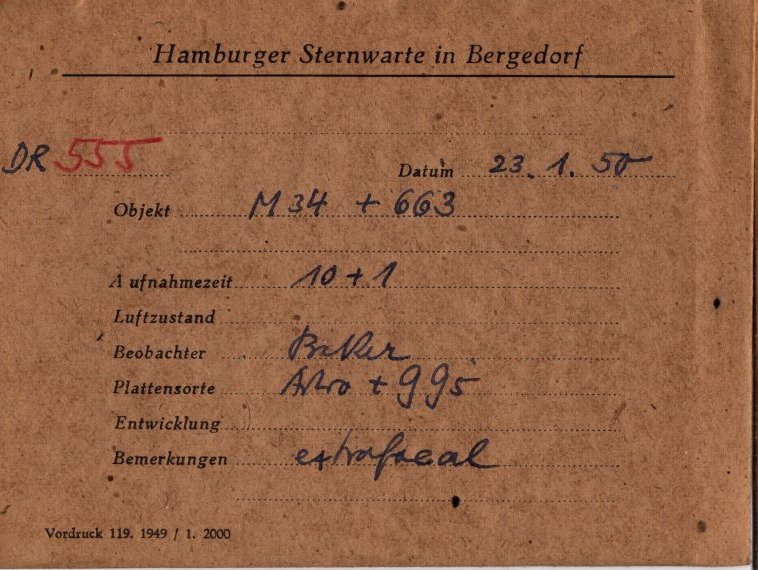 Hamburger Sternwarte in Bergedorf
DR 555
Datum 23. 1. 50
Objekt M 34 + 663
Aufnahmezeit 10 + 1
Luftzustand
Beobachter
Plattensorte Astro + 995
Entwicklung
Bemerkungen extrafocal
Vordruck 119. 1949 / 1. 2000